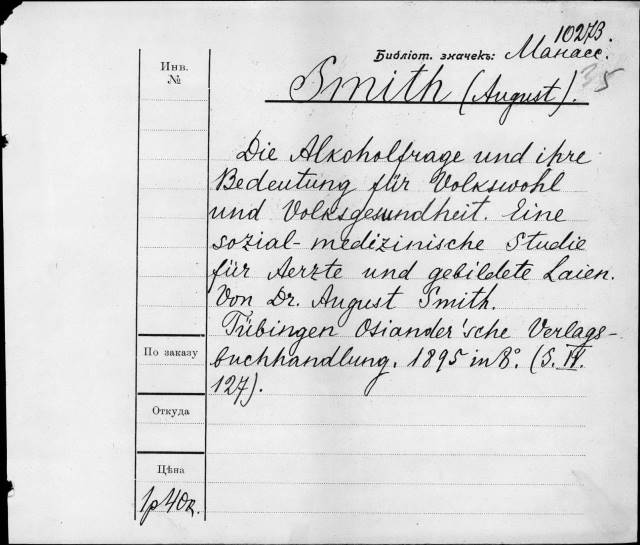 10273.
Библіот. значекъ: Манасс.
35
Инв.
№
Smith (August).
Die Alkoholfrage und ihre
Bedeutung für Volkswohl
und Volksgesundheit. Eine
sozial-medizinische Studie
für Aerzte und gebildete Laien.
Von Dr. August Smith.
Tübingen Osiander'sche Verlags-
buchhandlung. 1895 in 8°. (S. IV.
127).
По заказу
Откуда
Цѣна
1р 40к.